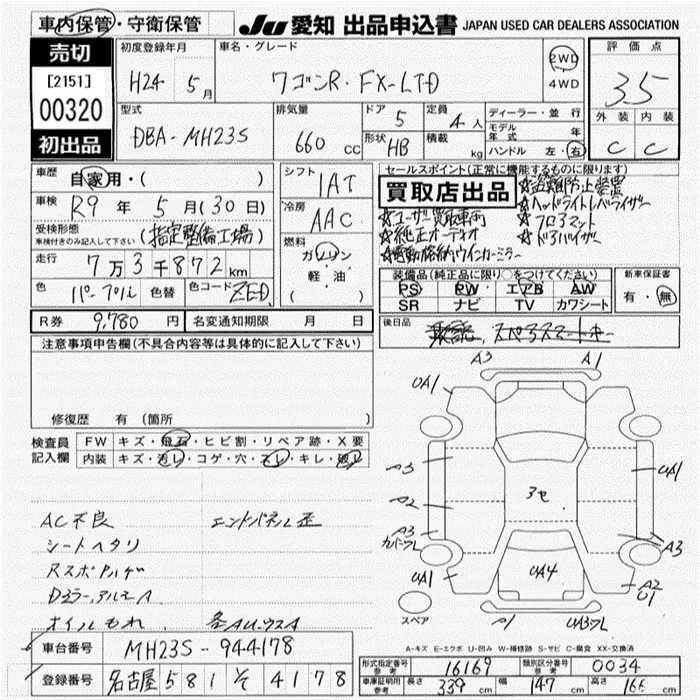 車内保管・守衛保管
JU 愛知 出品申込書 JAPAN USED CAR DEALERS ASSOCIATION
売切
[2151]
00320
初出品
初度登録年月
H24 5月
車名・グレード
ワゴンR・FX-LTD
2WD
4WD
評価点
3.5
外装 内装
C C
型式
DBA-MH23S
排気量
660 cc
ドア 5
形状 HB
定員 4人
積載 kg
ディーラー・並行
モデル年式 年
ハンドル 左・右
車歴 自家用・( )
車検 R9年 5月(30日)
受検形態
車検付きのみ記入して下さい
(指定整備工場)
走行 7万3千872km
色 パープル 色替 色コード ZED
シフト IAT
冷房 AAC
燃料
ガソリン
軽・油
( )
R券 9,780円 名変通知期限 月 日
セールスポイント(正常に機能するものに限ります)
買取店出品
☆盗難防止装置
☆ヘッドライトレベライザー
☆ユーザー買取車両
☆フロアマット
☆純正オーディオ
☆ドアバイザー
☆電動格納ウインカーミラー
装備品(純正品に限り○をつけてください)
PS PW エアB AW
SR ナビ TV カワシート
新車保証書
有・無
後日品
注意事項申告欄(不具合内容等は具体的に記入して下さい)
修復歴 有(箇所
検査員記入欄
FW キズ・飛石・ヒビ割・リペア跡・X要
内装 キズ・汚レ・コゲ・穴・スレ・キレ・破レ
AC不良 エンドパネル歪
シートヘタリ
RスポPハゲ
オイルもれ 各AUワスA
A3 A1
UA1
A3 3セ UA1
A2
A3 A3
カバーワレ
UA1 UA4 A2
U1
スペア A1 UA3ワレ
A-キズ E-エクボ U-凹み W-補修跡 S-サビ C-腐食 XX-交換済
車台番号 MH23S-944178
登録番号 名古屋 581 そ 4178
形式指定番号 参考 16169 類別区分番号 参考 0034
車庫証明用 参考 長さ 339cm 幅 147cm 高さ 166cm